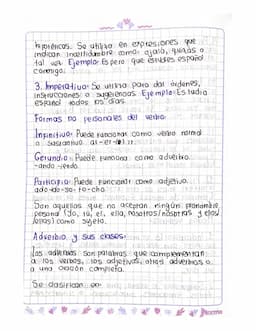 hipotéticas. Se utiliza en expresiones que
indican incertidumbre como: ojalá, quizás o
tal vez. Ejemplo: Espero que estudies español
conmigo.
3. Imperativo: Se utiliza para dar órdenes,
instrucciones o sugerencias. Ejemplo: Estudia
español todos los días.
Formas no personales del verbo
Infinitivo: Puede funcionar como verbo normal
o sustantivo. al-er-el-ir.
Gerundio: Puede funciona como adverbio.
-ando -iendo.
Participio: Puede funcionar como adjetivo.
ado-ido-so-to-cho.
Son aquellos que no aceptan ningún pronombre
personal (Yo, tú, él, ella, nosotros/nosotras y ellos/
ellas) como sujeto.
Adverbio y sus clases:
Los adverbios son palabras que complementan
a los verbos, los adjetivos, otros adverbios o
a una oración completa.
Se clasifican en: